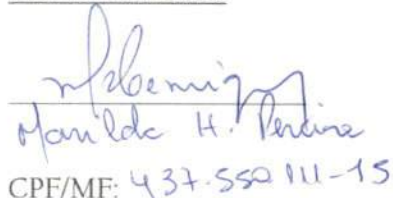 Marilda H. Pereira
CPF/MF: 437.550 111-15